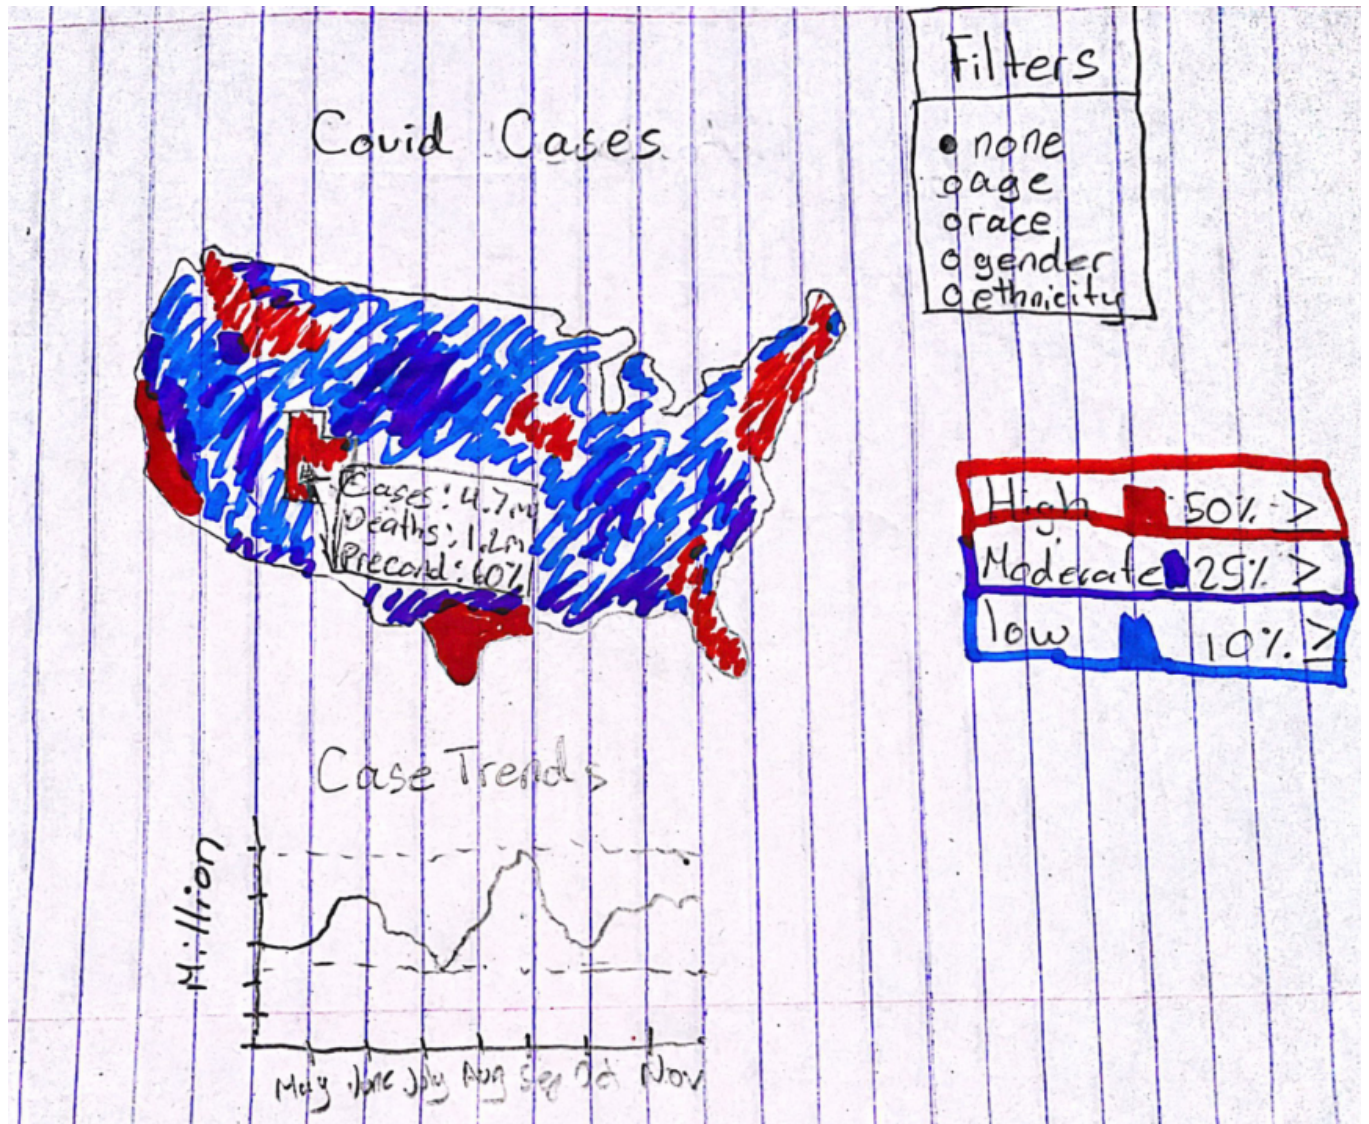 Filters
none
age
race
gender
ethnicity
Covid Cases
Cases: 4.7m
Deaths: 1.2m
: 60%
High 50% >
Moderate 25% >
low 10% >
Case Trends
Million
May June July Aug Sep Oct Nov